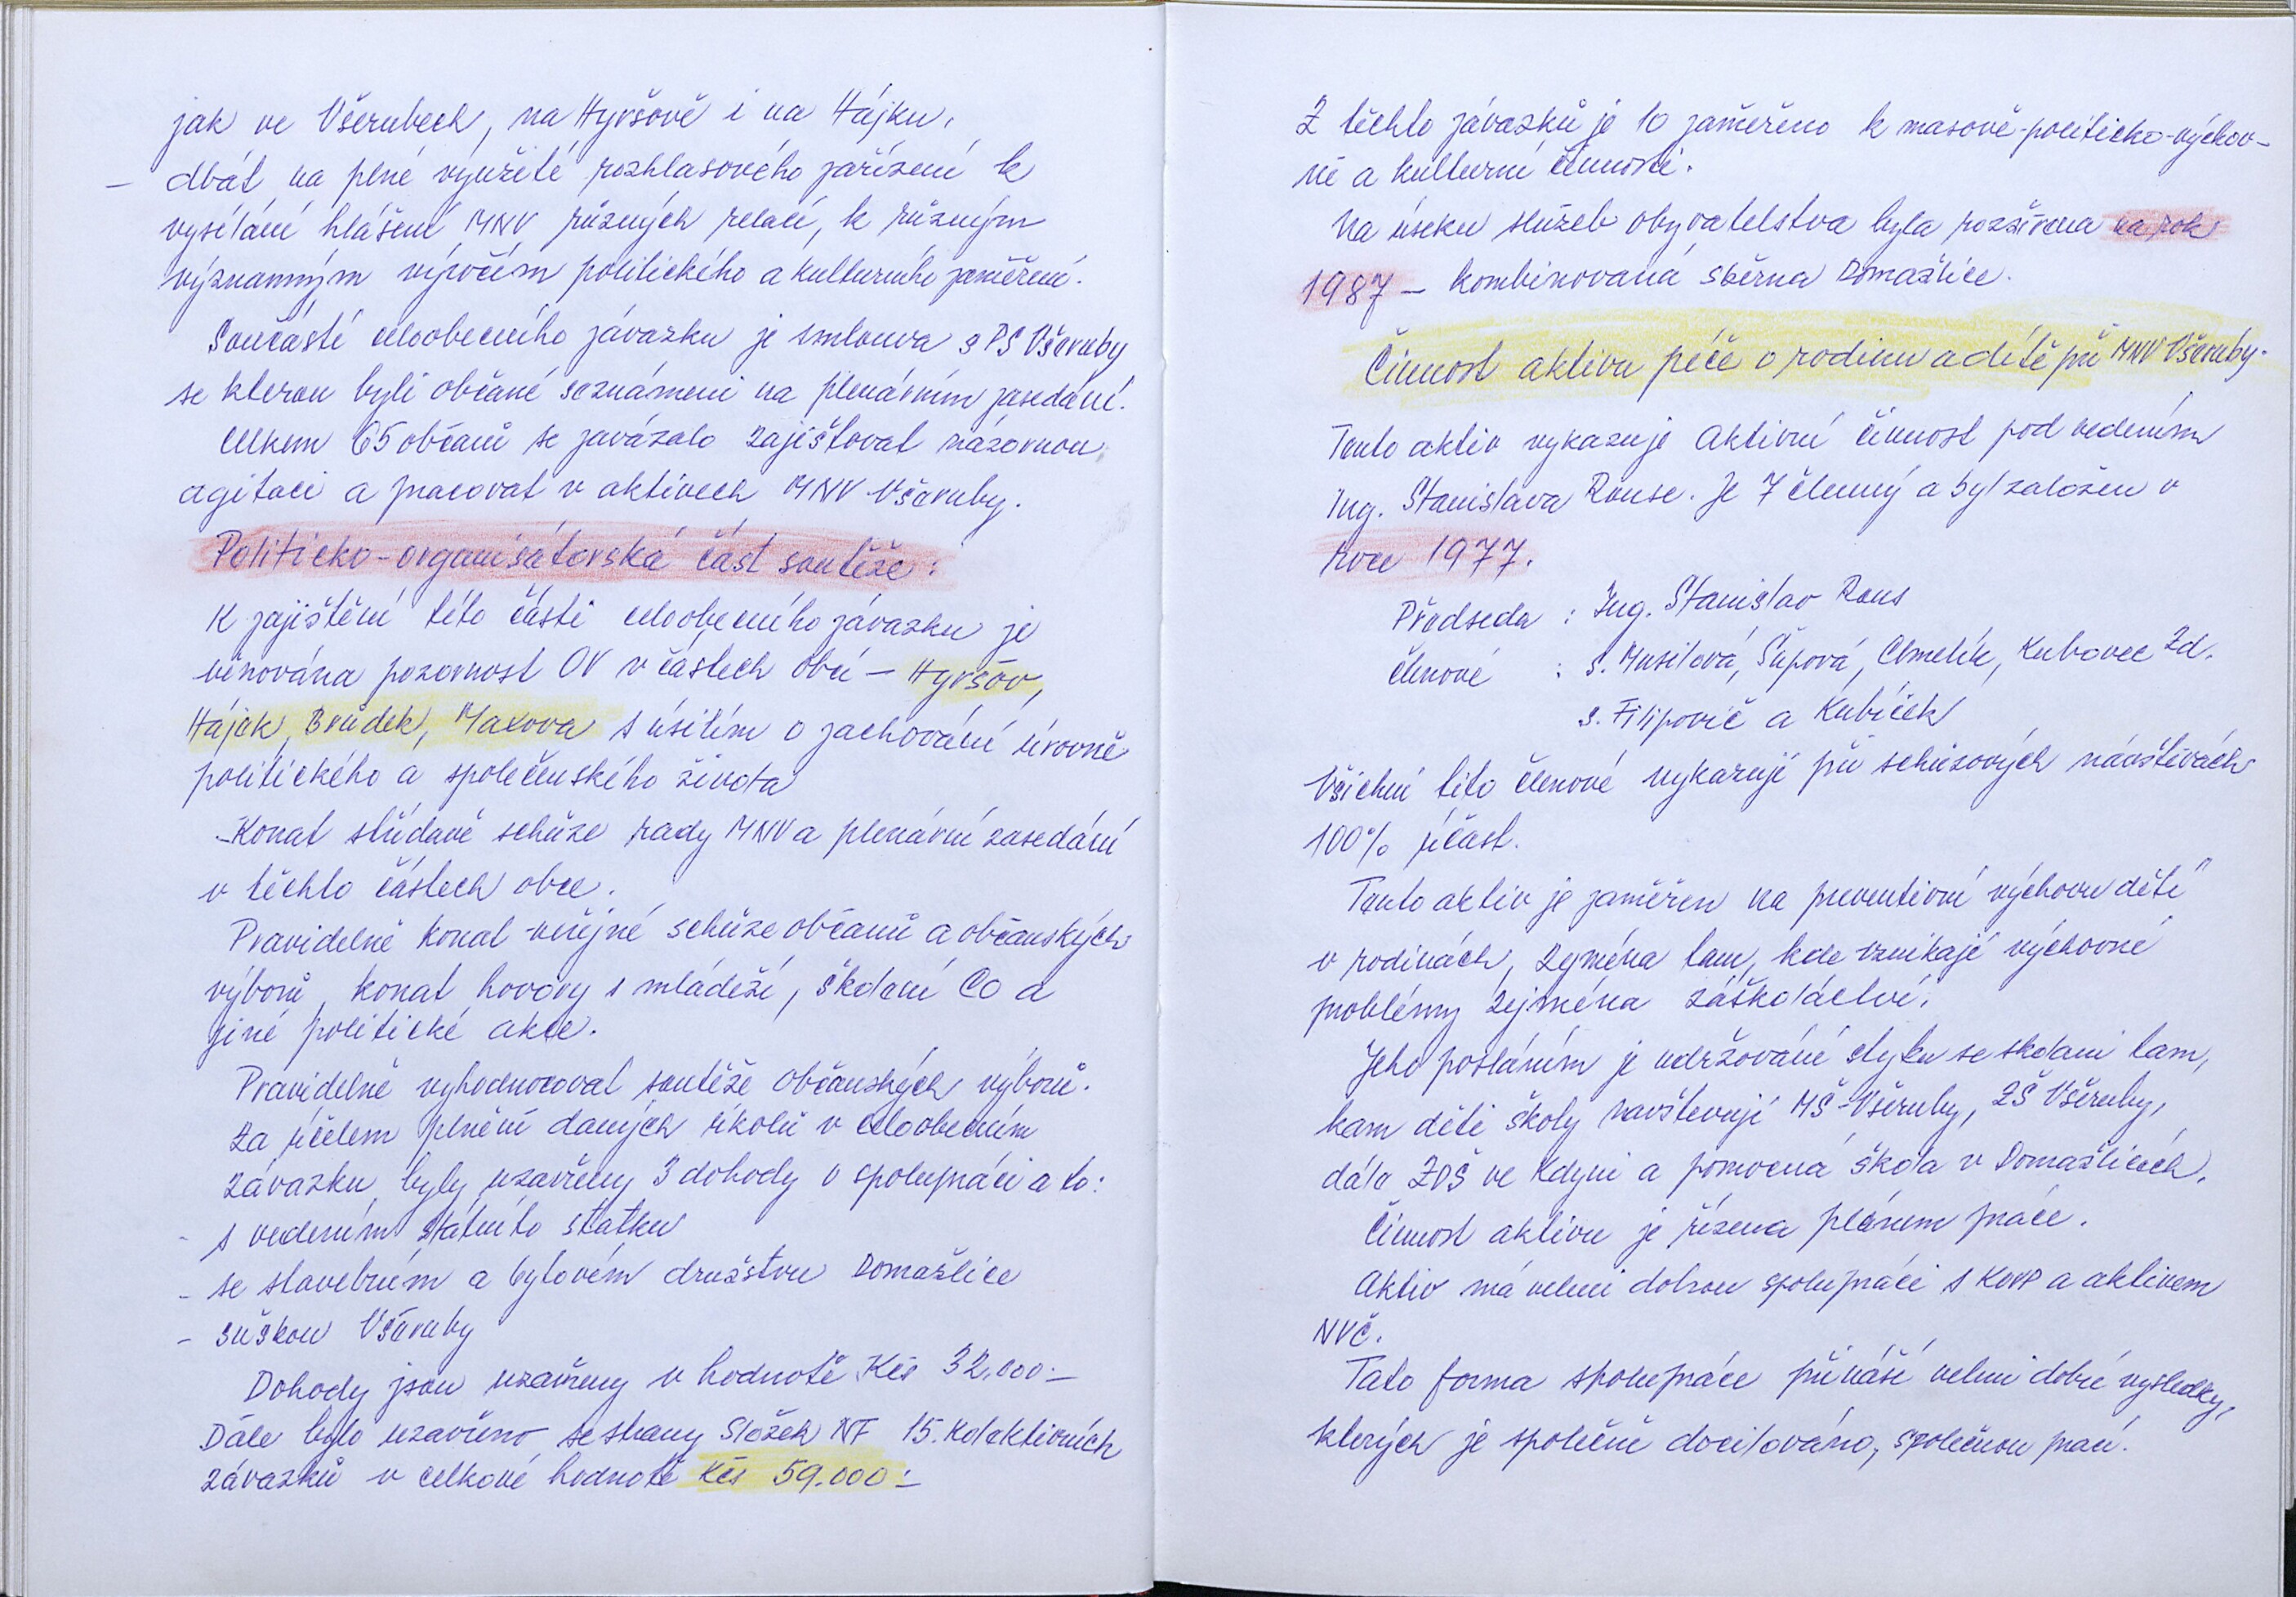 jak ve Všerubech, na Hyršově i na Hájku.
- dbát na plné využití rozhlasového zařízení k
vysílání hlášení MNV různých relací, k různým
významným výročím politického a kulturního zaměření.
Součástí celoobecního závazku je smlouva s PS Všeruby
se kterou byli občané seznámeni na plenárním zasedání.
Celkem 65 občanů se zavázalo zajišťovat názornou
agitaci a pracovat v aktivech MNV Všeruby.
Politicko-organisátorská část soutěže:
K zajištění této části celoobecního závazku je
věnována pozornost OV v částech obcí - Hyršov,
Hájek, Brůdek, Maxova s úsilím o zachování úrovně
politického a společenského života
- Konat střídavě schůze rady MNV a plenární zasedání
v těchto částech obce.
Pravidelně konat veřejné schůze občanů a občanských
výborů, konat hovory s mládeží, školení CO a
jiné politické akce.
Pravidelně vyhodnocovat soutěže občanských výborů.
Za účelem plnění daných úkolů v celoobecním
závazku byly uzavřeny 3 dohody o spolupráci a to:
- s vedením státního statku
- se stavebním a bytovém družstvu Domažlice
- suškou Všeruby
Dohody jsou uzavřeny v hodnotě Kčs 32.000.-
Dále bylo uzavřeno se strany složek NF 15. kolektivních
závazků v celkové hodnotě Kčs 59.000:-
Z těchto závazků je 10 zaměřeno k masově-politicko-výchov-
né a kulturní činnosti.
Na úseku služeb obyvatelstva byla rozšířena na rok
1987 - kombinovaná sběrna Domažlice.
Činnost aktivu péče o rodinu a dítě při MNV Všeruby.
Tento aktiv vykazuje aktivní činnost pod vedením
Ing. Stanislava Rouse. Je 7 členný a byl založen v
roce 1977.
Předseda : Ing. Stanislav Rous
členové : s. Musilová, Šupová, Chmelík, Kubovec Zd.
s. Filipovič a Kubíček
Všichni tito členové vykazují při schůzových návštěvách
100% účast.
Tento aktiv je zaměřen na preventivní výchovu dětí
v rodinách, zejména tam, kde vznikají výchovné
problémy zejména záškoláctví.
Jeho posláním je udržování styku se školami tam,
kam děti školy navštěvují MŠ-Všeruby, ZŠ Všeruby,
dále ZDŠ ve Kdyni a pomocná škola v Domažlicích.
Činnost aktivu je řízena plánem práce.
Aktiv má velmi dobrou spolupráci s KOVP a aktivem
NVČ.
Tato forma spolupráce přináší velmi dobré výsledky,
kterých je společně docilováno, společnou prací.